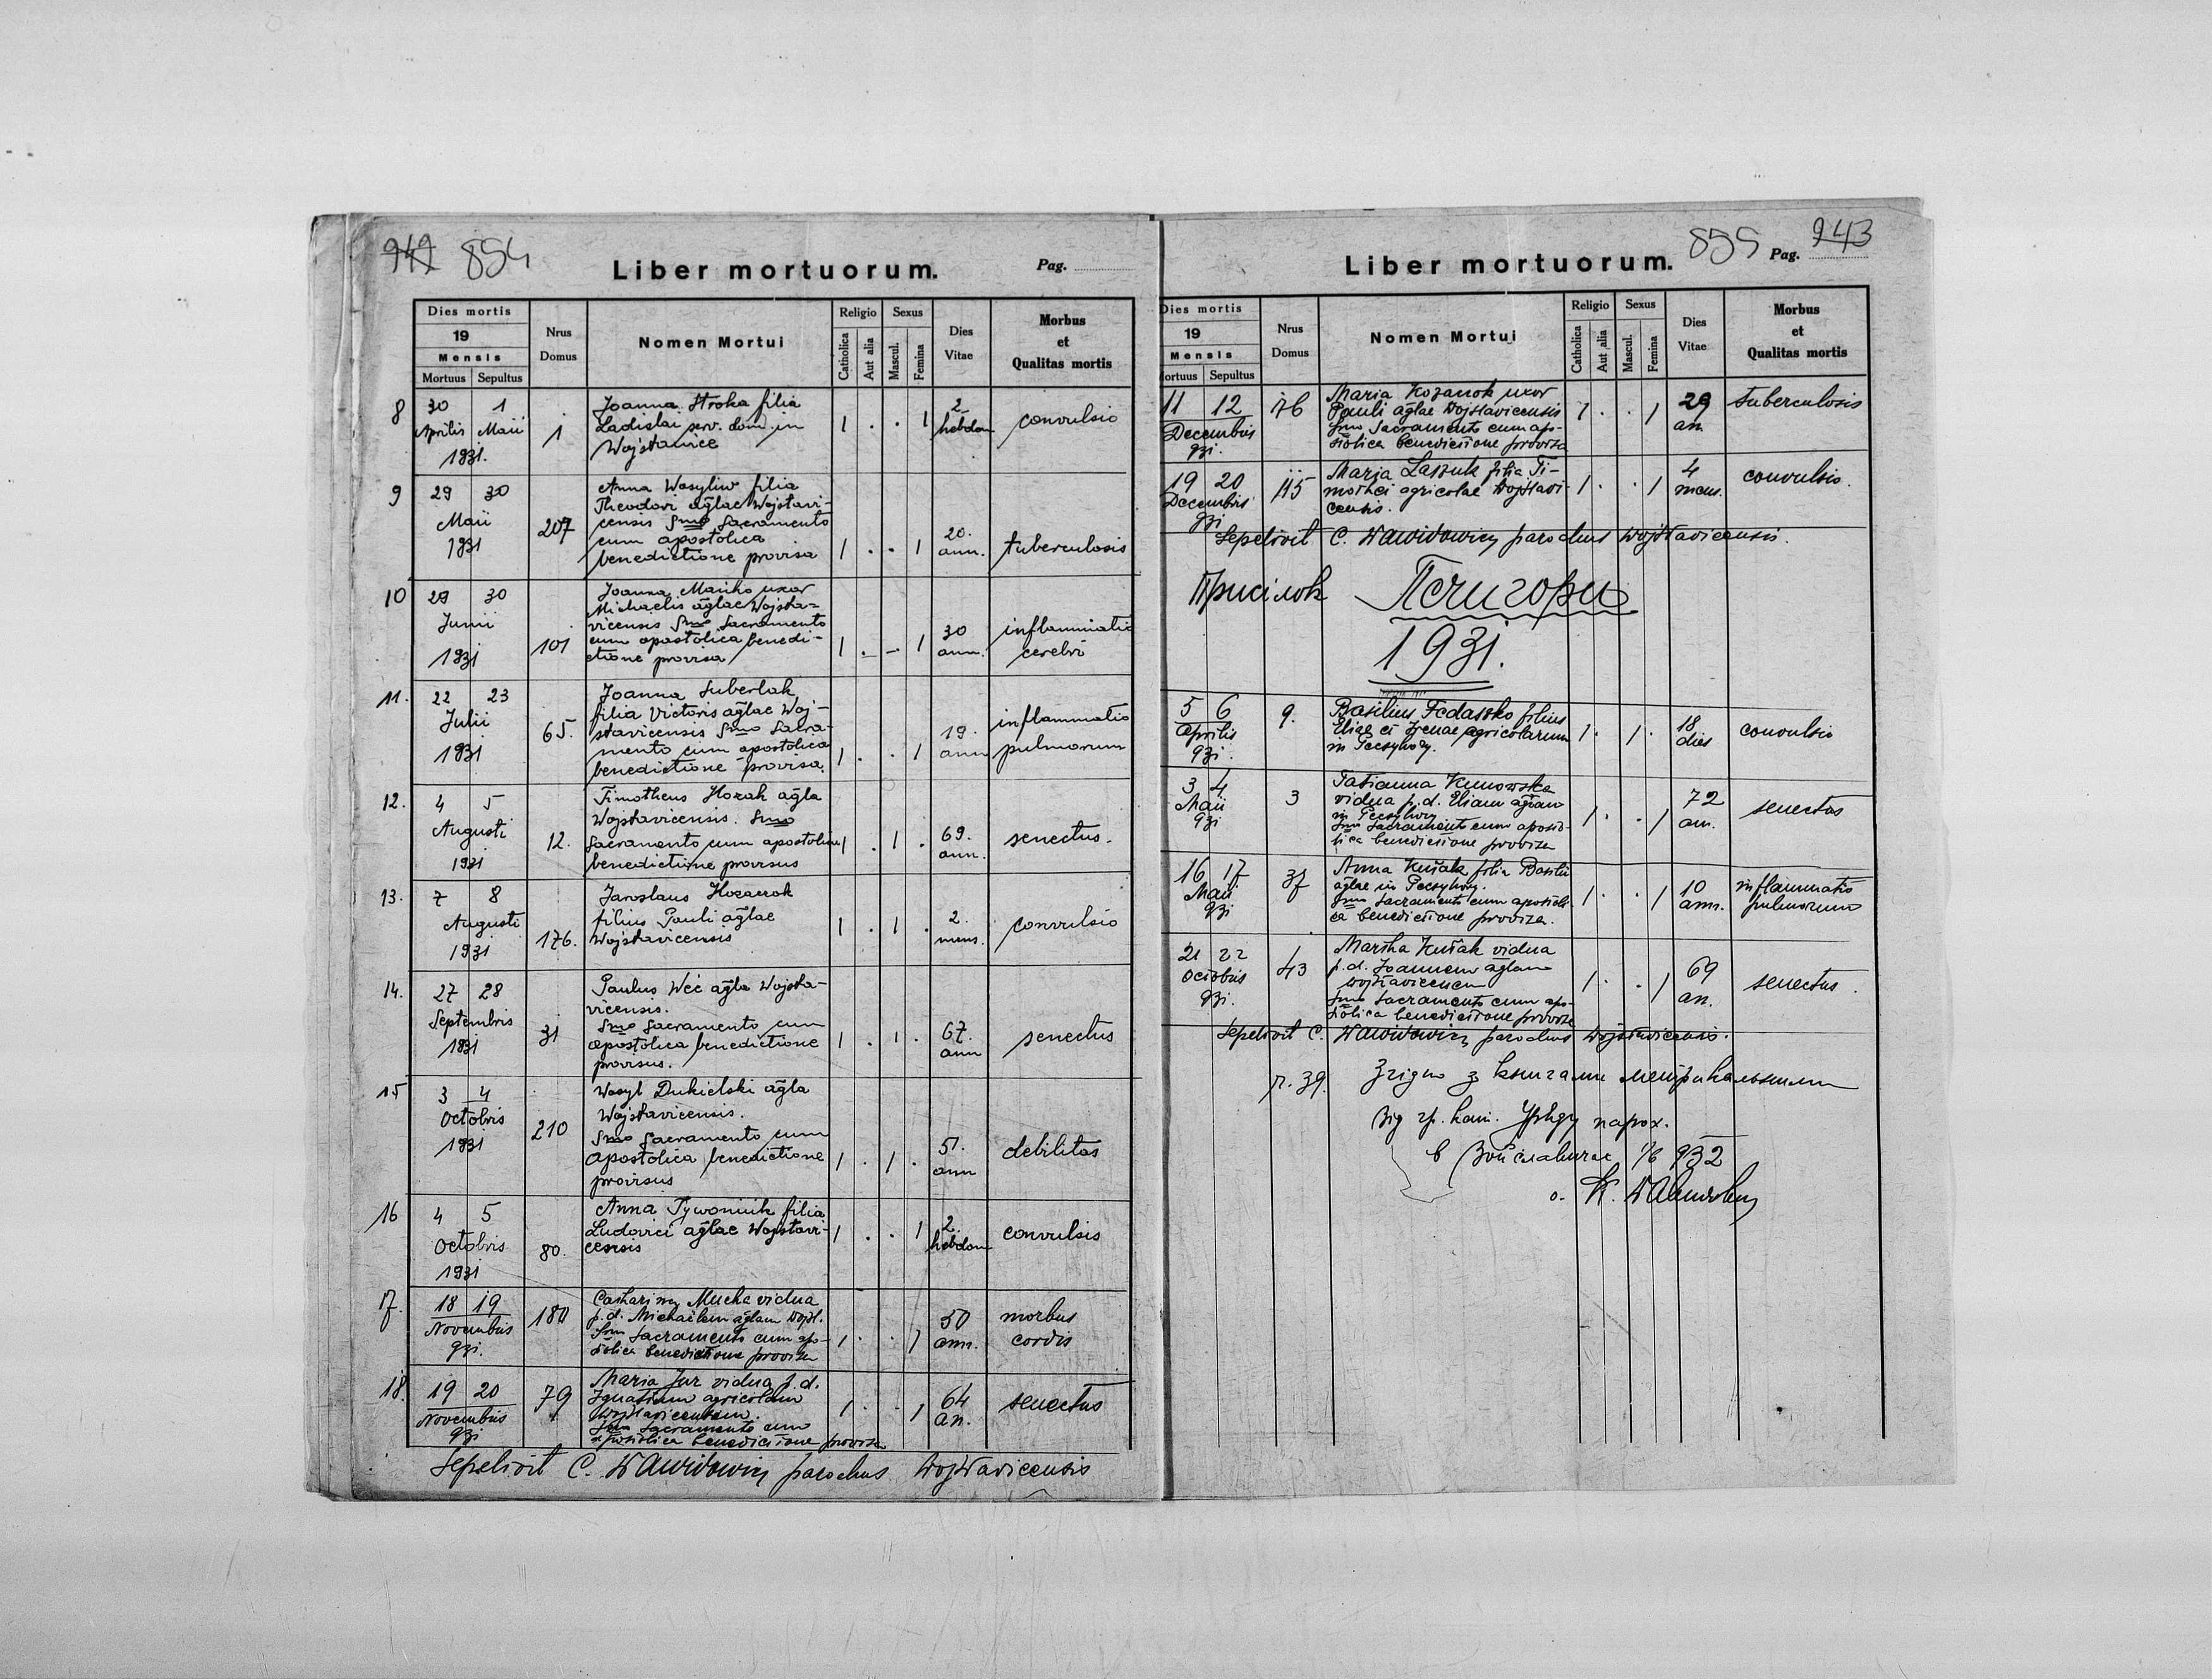 942 854
Liber mortuorum. Pag.
Dies mortis
19
Mensis
Mortuus Sepultus
Nrus Domus
Nomen Mortui
Religio
Catholica Aut alia
Sexus
Mascul. Femina
Dies Vitae
Morbus et Qualitas mortis
8 30 1
Aprilis Maii
1931.
1
Joanna Stroka filia
Ladislai serv. dom. in
Wojsławice
1 . . 1
2 hebdom
convulsio
9 29 30
Maii
1931
207
Anna Wasyliw filia
Theodori aglae Wojsławi-
censis Smo Sacramento
cum apostolica
benedictione provisa
1 . . 1
20. ann.
tuberculosis
10 29 30
Junii
1931
101
Joanna Mańko uxor
Michaelis aglae Wojsła-
vicensis Smo Sacramento
cum apostolica benedi-
ctione provisa
1 . . 1
30 ann.
inflammatio
cerebri
11. 22 23
Julii
1931
65.
Joanna Suberlak
filia Victoris aglae Woj-
sławicensis Smo Sacra-
mento cum apostolica
benedictione provisa.
1 . . 1
19. ann
inflammatio
pulmorum
12. 4 5
Augusti
1931
12.
Timotheus Hozak agla
Wojsławicensis. Smo
Sacramento cum apostolica
benedictione provisus
1 . 1 .
69. ann.
senectus.
13. 7 8
Augusti
1931
176.
Jaroslaus
filius Pauli aglae
Wojsławicensis
1 . 1 .
2. mens.
convulsio
14. 27 28
Septembris
1931
31
Paulus Weć agla Wojsła-
vicensis.
Smo Sacramento cum
apostolica benedictione
provisus.
1 . 1 .
67. ann
senectus
15 3 4
Octobris
1931
210
Wasyl Dukielski agla
Wojsławicensis.
Smo Sacramento cum
apostolica benedictione
provisus
1 . 1 .
51. ann
debilitas
16 4 5
Octobris
1931
80.
Anna Tywoniuk filia
Ludovici aglae Wojsławi-
censis
1 . . 1
2. hebdom
convulsis
17. 18 19
Novembris
931.
180
Catharina Mucha vidua
p.d. Michaelem aglam Wojsł.
Smo Sacramento cum apo-
stolica benedictione provisa
1 . . 1
50 ann.
morbus
cordis
18 19 20
Novembris
931
79
Maria Jur vidua p.d.
Ignatium agricolam
Wojsławicensem.
Smo Sacramento cum
apostolica benedictione provisa
1 . . 1
64 an.
senectus
Sepelivit C. Wawidowicz parochus Wojsławicensis
855 Pag. 943
Liber mortuorum.
Dies mortis
19
Mensis
Mortuus Sepultus
Nrus Domus
Nomen Mortui
Religio
Catholica Aut alia
Sexus
Mascul. Femina
Dies Vitae
Morbus et Qualitas mortis
11 12
Decembris
931.
176
Maria uxor
Pauli aglae Wojsławicensis
Smo Sacramento cum apo-
stolica benedictione provisa
1 . . 1
29 an.
tuberculosis
19 20
Decembris
931
115
Maria Laszuk filia Ti-
mothei agricolae Wojsławi-
censis.
1 . . 1
4 mens.
convulsio.
Sepelivit C. Wawidowicz parochus Wojsławicensis.
Присілок Печигори
1931.
5 6
Aprilis
931.
9.
Basilius Fedaszko filius
Eliae et Irenae agricolarum
in Peczyhory.
1 . 1 .
18 dies
convulsio
3 4
Maii
931
3
Tatianna
vidua p.d. Eliam aglam
in Peczyhory
Smo Sacramento cum aposto-
lica benedictione provisa
1 . . 1
72 an.
senectus
16 17
Maii
931
37
Anna Kuśak filia Basilii
aglae in Peczyhory.
Smo Sacramento cum apostoli-
ca benedictione provisa.
1 . . 1
10 ann.
inflammatio
pulmorum
21 22
Octobris
931.
43
Martha Kuśak vidua
p.d. Joannem aglam
Wojsławicensem
Smo Sacramento cum apo-
stolica benedictione provisa
1 . . 1
69 an.
senectus.
Sepelivit C. Wawidowicz parochus Wojsławicensis.
Згідно з книгами метрикальними
Від гр. кат. Уряду парох.
в Войславичах 932
о. К.